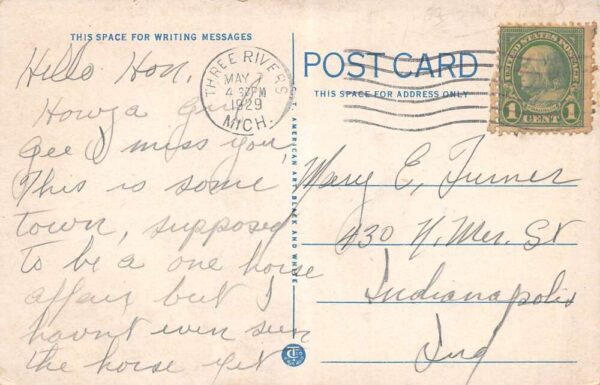 THIS SPACE FOR WRITING MESSAGES
Hello Hon,
Howza
gee I miss you,
This is some
town, supposed
to be a one horse
affair, but I
havnt even seen
the horse yet
THREE RIVERS
MAY 7
4 PM
1929
MICH.
C.T. AMERICAN ART BLACK AND WHITE
POST CARD
THIS SPACE FOR ADDRESS ONLY
UNITED STATES POSTAGE
1 CENT 1
Mary E, Turner
430 N, Mer. St
Indianapolis
Ind